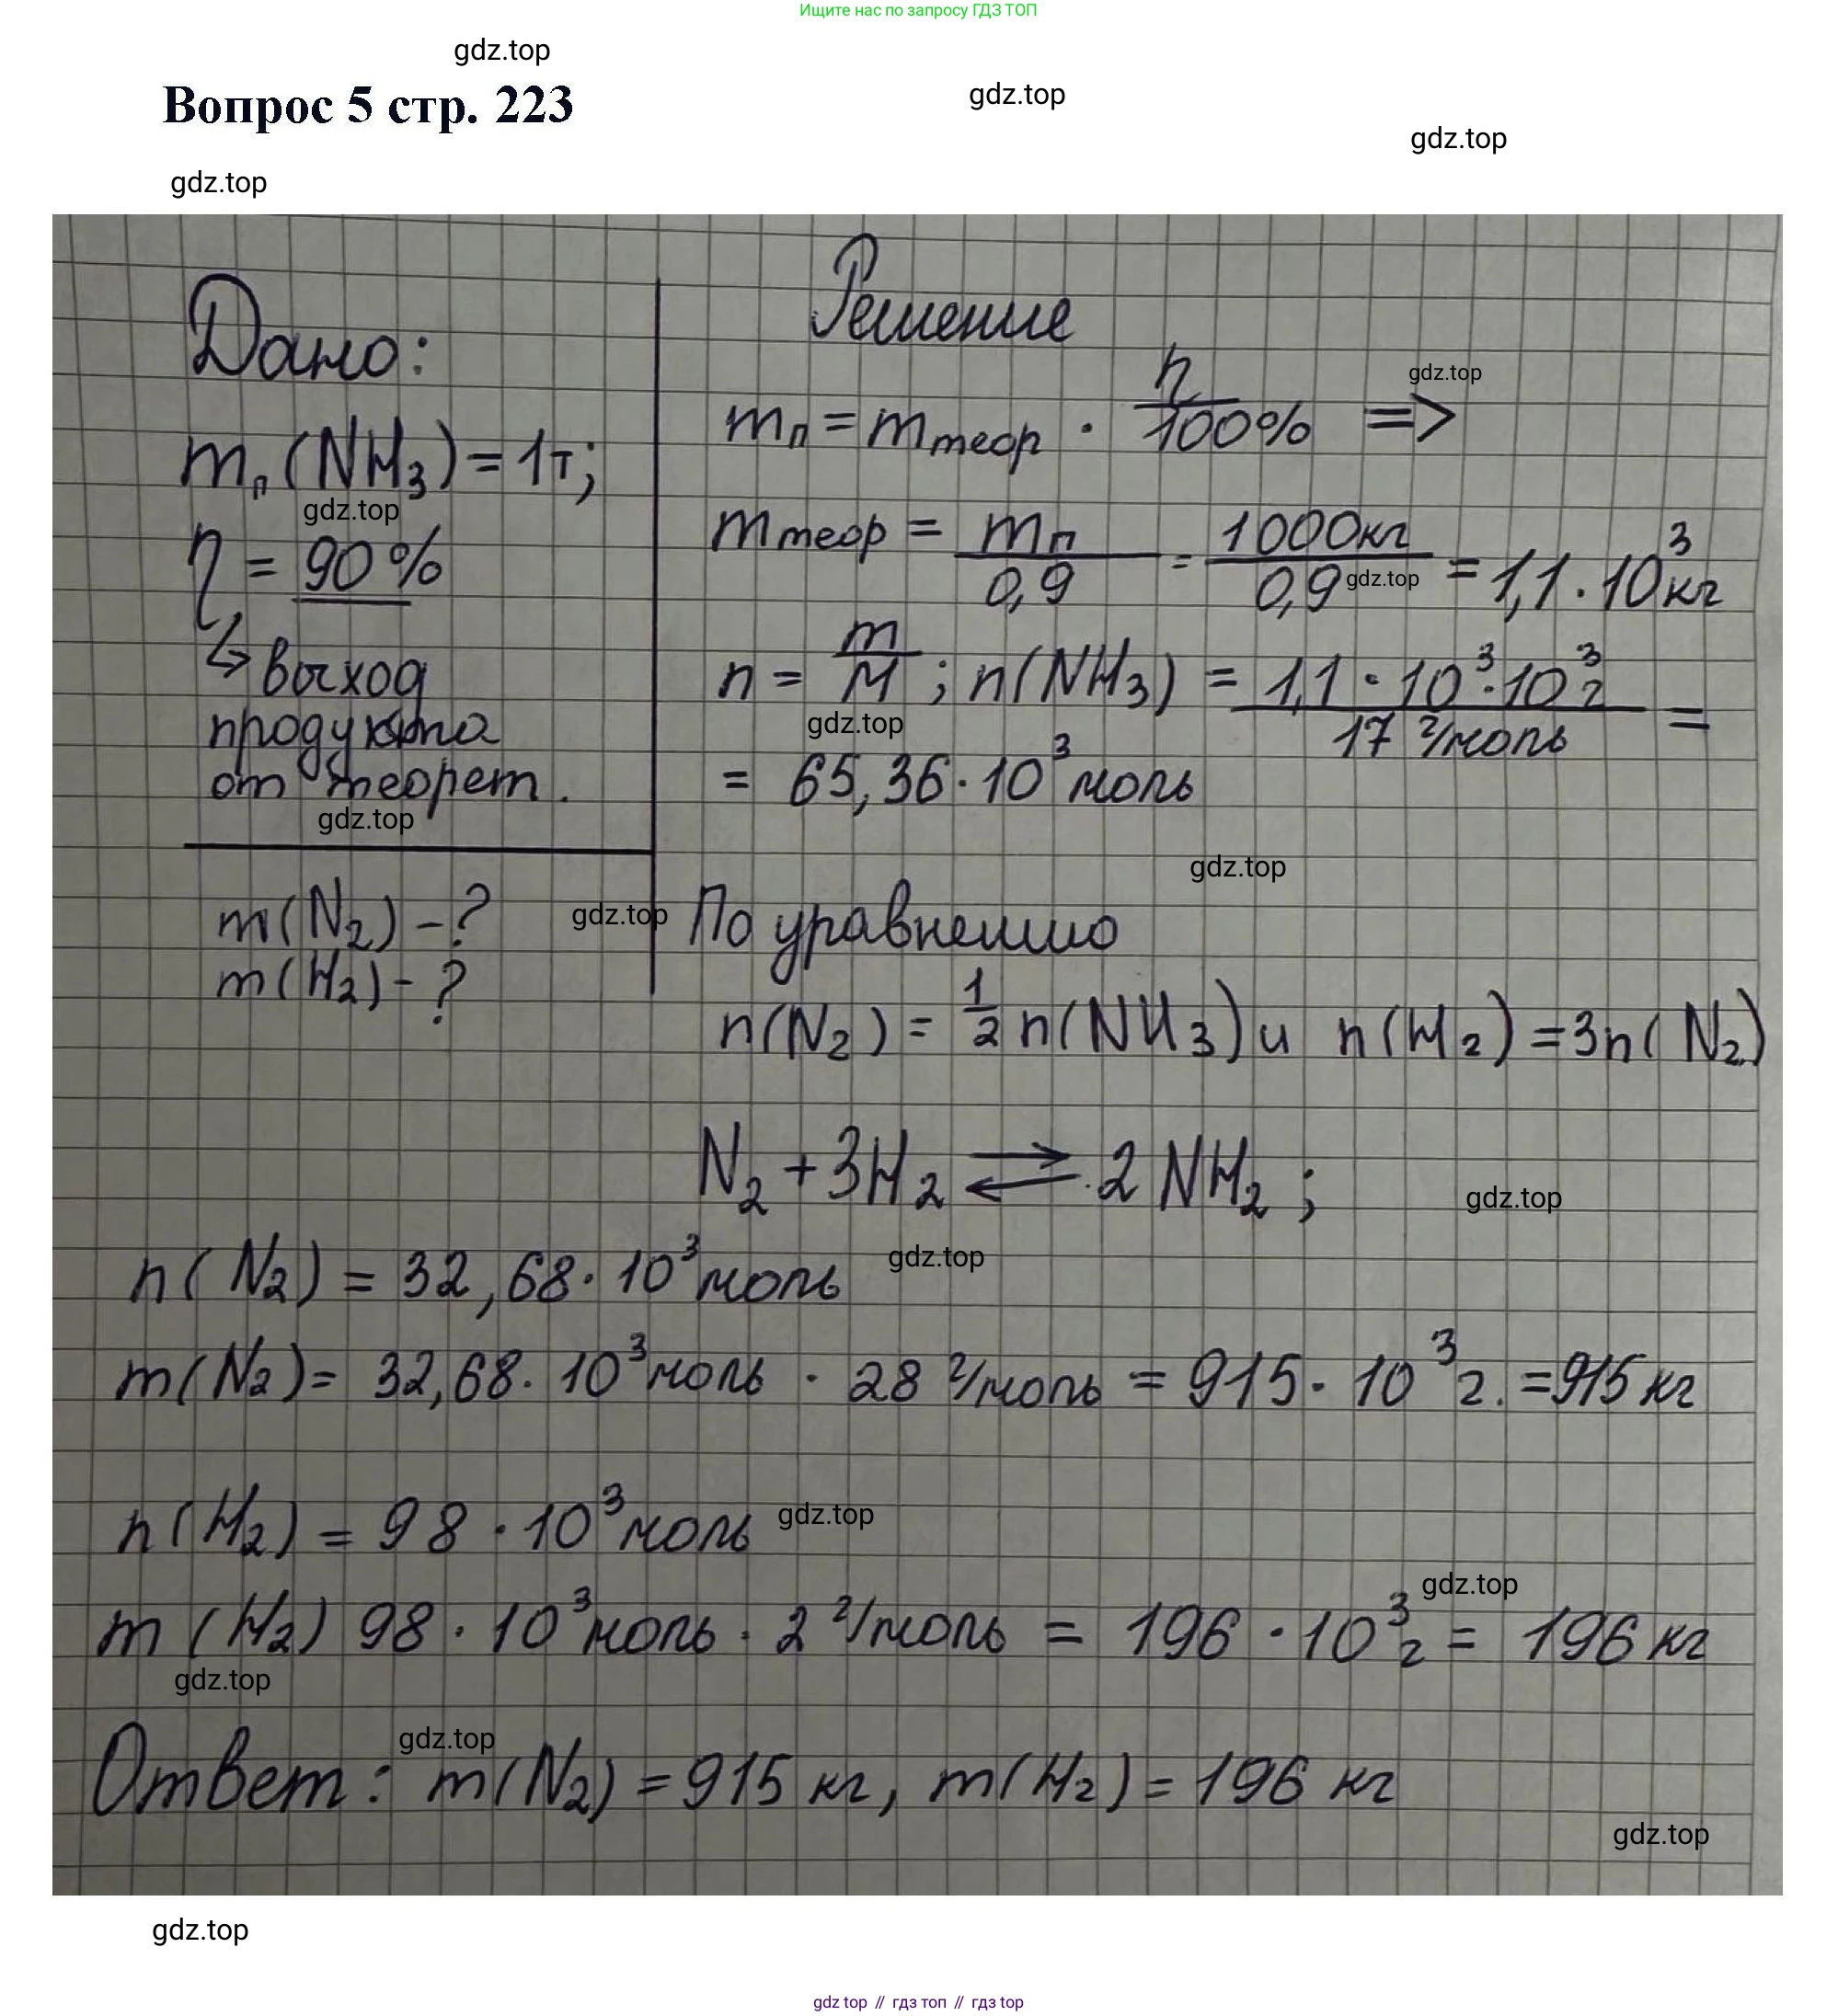 Ищите нас по запросу ГДЗ ТОП
gdz.top
Вопрос 5 стр. 223
gdz.top
gdz.top
gdz.top
Дано:
mп(NH₃) = 1т;
gdz.top
η = 90%
↳ выход
продукта
от теорет.
gdz.top
m(N₂) - ?
m(H₂) - ?
gdz.top
Решение
mп = mтеор · η/100% =>
gdz.top
mтеор = mп/0,9 = 1000кг/0,9 = 1,1 · 10³кг
gdz.top
n = m/M ; n(NH₃) = 1,1 · 10³ · 10³г / 17 г/моль =
gdz.top
= 65,36 · 10³ моль
gdz.top
По уравнению
n(N₂) = 1/2 n(NH₃) и n(H₂) = 3n(N₂)
N₂ + 3H₂ ⇄ 2NH₂ ;
gdz.top
n(N₂) = 32,68 · 10³ моль
gdz.top
m(N₂) = 32,68 · 10³ моль · 28 г/моль = 915 · 10³ г. = 915 кг
n(H₂) = 98 · 10³ моль
gdz.top
gdz.top
m(H₂) 98 · 10³ моль · 2 г/моль = 196 · 10³ г = 196 кг
gdz.top
gdz.top
Ответ: m(N₂) = 915 кг, m(H₂) = 196 кг
gdz.top
gdz.top
gdz top // гдз топ // гдз top